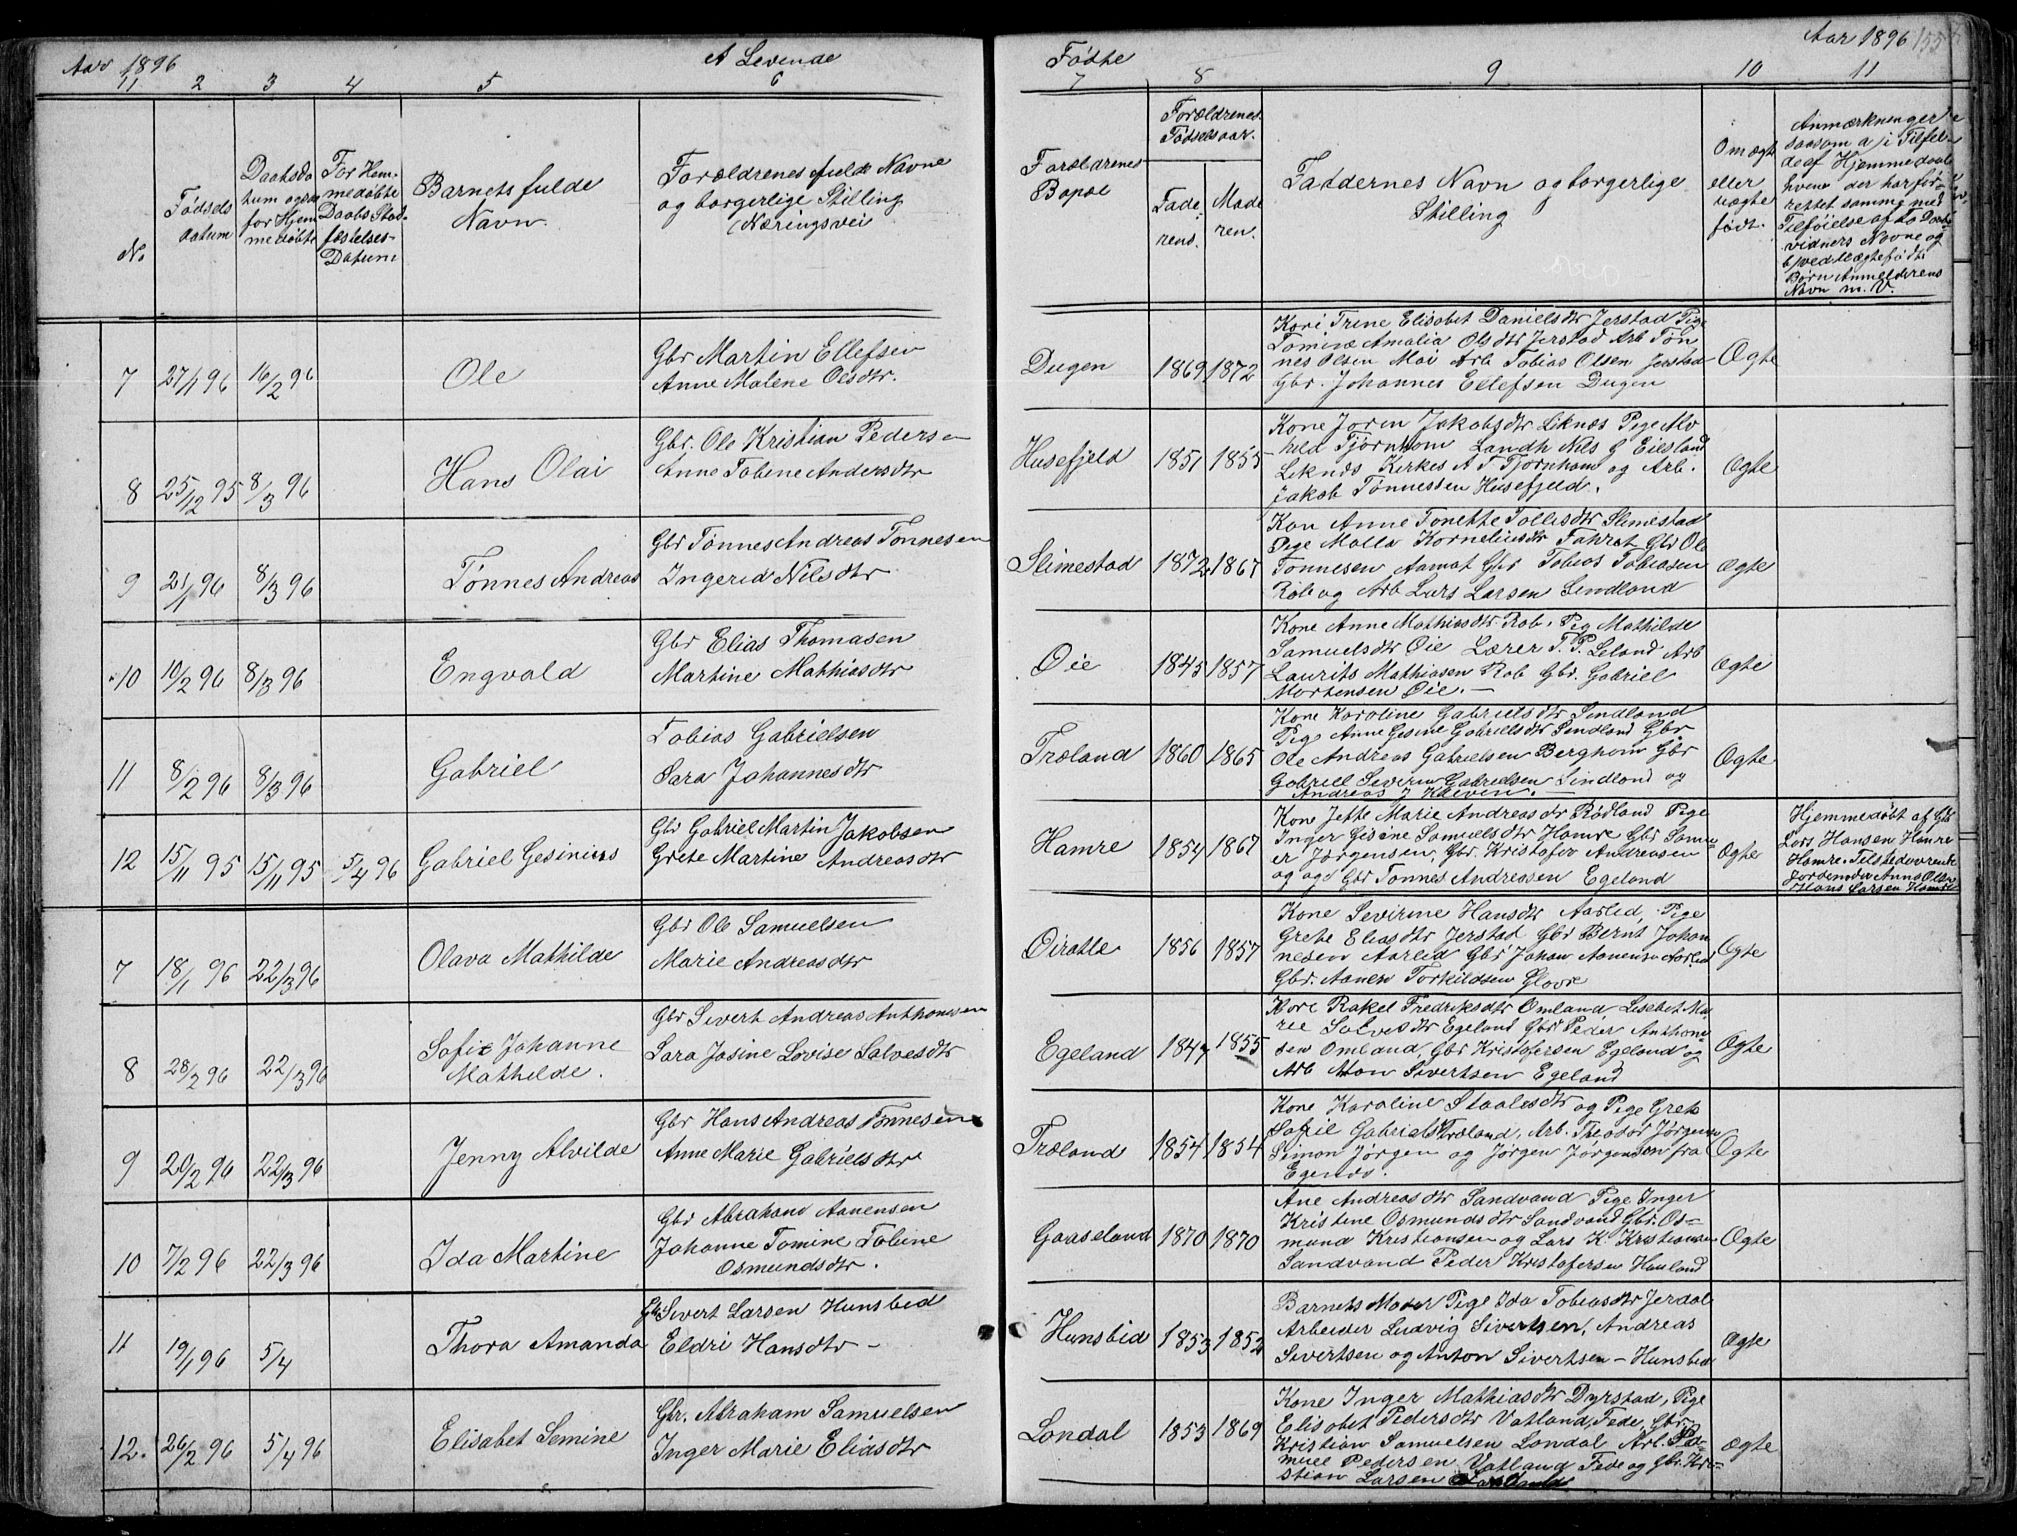 Aar 1896
A Levende
Fødte
Aar 1896 155
11 2 3 4 5 6 7 8 9 10 11
No.
Fødsels
datum
Daabsda
tum ogsaa
for Hjem
medøbte
For Hjem-
medøbte
Daabs Stad-
fæstelses-
Datum
Barnets fulde
Navn.
Forældrenes fulde Navne
og borgerlige Stilling
Næringsvei
Forældrenes
Bopæl
Forældrenes
Fødselsaar.
Fade
rens.
Mode
ren.
Faddernes Navn og borgerlige
Stilling
Om ægte
eller
uægte
født.
Anmærkninger
saasom a) i Tilfæl-
de af Hjemmedaab
hvem der har for-
rettet samme med
Tilføielse af to Daabs
vidners Navne og
b) ved uægtefødte
Børn Anmelderens
Navn m. V.
7 27/1 96 16/2 96 Ole
Gbr Martin Ellefsen
Anne Malene Olsdtr.
Dugen 1869 1872
Kori Trine Elisabet Danielsdtr Jerstad Pige
Tomine Amalia Olsdtr Jerstad Arb Tøn
nes Olsen Moi Arb Tobias Olsen Jerstad
Gbr. Johannes Ellefsen Dugen
Ægte
8 25/12 95 8/3 96 Hans Olai
Gbr. Ole Kristian Pedersen
Anne Tobine Andersdtr
Husefjeld 1851 1855
Kone Joren Jakobsdtr Liknæs Pige Al
hild Tjørnhom Landh Nils G Eiesland
Liknæs Kirkes A T Tjørnhom og Arb.
Jakob Tønnessen Husefjeld.
Ægte
9 21/1 96 8/3 96 Tønnes Andreas
Gbr Tønnes Andreas Tønnesen
Ingerid Nilsdtr
Slimestad 1872 1867
Kon Anne Tonette Tollisdtr Slimestad
Pige Malla Kornelius dtr Gbr Ole
Tønnesen Aamot Gbr Tobias Tobiasen
Rob og Arb Lars Larsen Sindland
ægte
10 10/2 96 8/3 96 Engvald
Gbr Elias Thomasen
Martine Mathiasdtr
Øie 1845 1857
Kone Anne Mathiasdtr Rob. Pig Mathilde
Samuelsdtr Øie Lærer T. P. Leland Arb
Laurits Mathiasen Rob Gbr. Gabriel
Mortensen Øie. —
Ægte
11 8/2 96 8/3 96 Gabriel
Tobias Gabrielsen
Sara Johannesdtr
Træland 1860 1865
Kone Karoline Gabrielsdtr Sindland
Pige Anne Gesine Gabrielsdtr Sindland Gbr
Ole Andreas Gabrielsen Berghom Gbr
Gabriel Severin Gabrielsen Sindland og
Andreas J Kleven. —
Ægte
12 15/11 95 15/11 95 5/4 96 Gabriel Gesinius
Gbr Gabriel Martin Jakobsen
Grete Martine Andreasdtr
Hamre 1854 1867
Kon Jette Marie Andreasdtr Rødland Pige
Inger Gisine Samuelsdtr Hamre Gbr Samu-
el Jørgensen, Gbr. Kristofer Andreasen
og Gbr Tønnes Andreasen Egeland
Ægte
Hjemmedøbt af Gbr
Lars Hansen Hamre
Hamre. Tilstedeværende
Jordemoder Anne Olsen
Hans Larsen Hamre
7 18/1 96 22/3 96 Olava Mathilde
Gbr Ole Samuelsen
Marie Andreasdtr
1856 1857
Kone Severine Hansdtr Aarlid, Pige
Grete Eliasdtr Jerstad Gbr Bernt Johan
nesen Aarlid Gbr Johan Aanensen Aarlid
Gbr. Aanen Torkildsen Glovre
Ægte
8 28/2 96 22/3 96 Sofie Johanne
Mathilde.
Gbr Sivert Andreas Anthonsen
Sara Josine Lovise Salvesdtr
Egeland 1847 1855
Kone Rakel Fredriksdtr Omland, Lisebet Ma
rie Salvesdtr Egeland Gbr Peder Anthoni-
sen Omland, Gbr Kristofersen Egeland og
Arb Sivertsen Egeland
Ægte
9 20/2 96 22/3 96 Jenny Alvilde
Gbr Hans Andreas Tønnesen
Anne Marie Gabrielsdtr
Træland 1854 1854
Kone Karoline Staalesdtr og Pige Grete
Sofie Gabriels Træland, Arb. Theodor Jørgensen
Simon Jørgen og Jørgen Jørgensen fra
Egenes.
Ægte
10 7/2 96 22/3 96 Ida Martine
Gbr Abraham Aanensen
Johanne Tomine Tobine
Osmundsdtr.
Gaaseland 1870 1870
Ane Andreasdtr Sandvand Pige Inger
Kristine Osmundsdtr Sandvand Gbr. Os-
mund Kristiansen og Lars K. Kristiansen
Sandvand Peder Kristofersen Hauland
Ægte
11 19/1 96 5/4 Thora Amanda
Gbr Sivert Larsen Hunsbed
Eldri Hansdtr —
Hunsbed 1853 1852
Barnets Moder Pige Ida Tobiasdtr Jerdal
Arbeider Ludvig Sivertsen, Andreas
Sivertsen og Anton Sivertsen – Hunsbed
Ægte
12. 26/2 96 5/4 96 Elisabet Semine
Gbr. Abraham Samuelsen
Inger Marie Eliasdtr
Londal 1853 1869
Kone Inger Mathiasdtr Dyrstad, Pige
Elisabet Pedersdtr Vatland, Fede, Gbr.
Kristian Samuelsen Londal Arb. Sa-
muel Pedersen Vatland Fede og Gbr. Kri-
stian Larsen
ægte